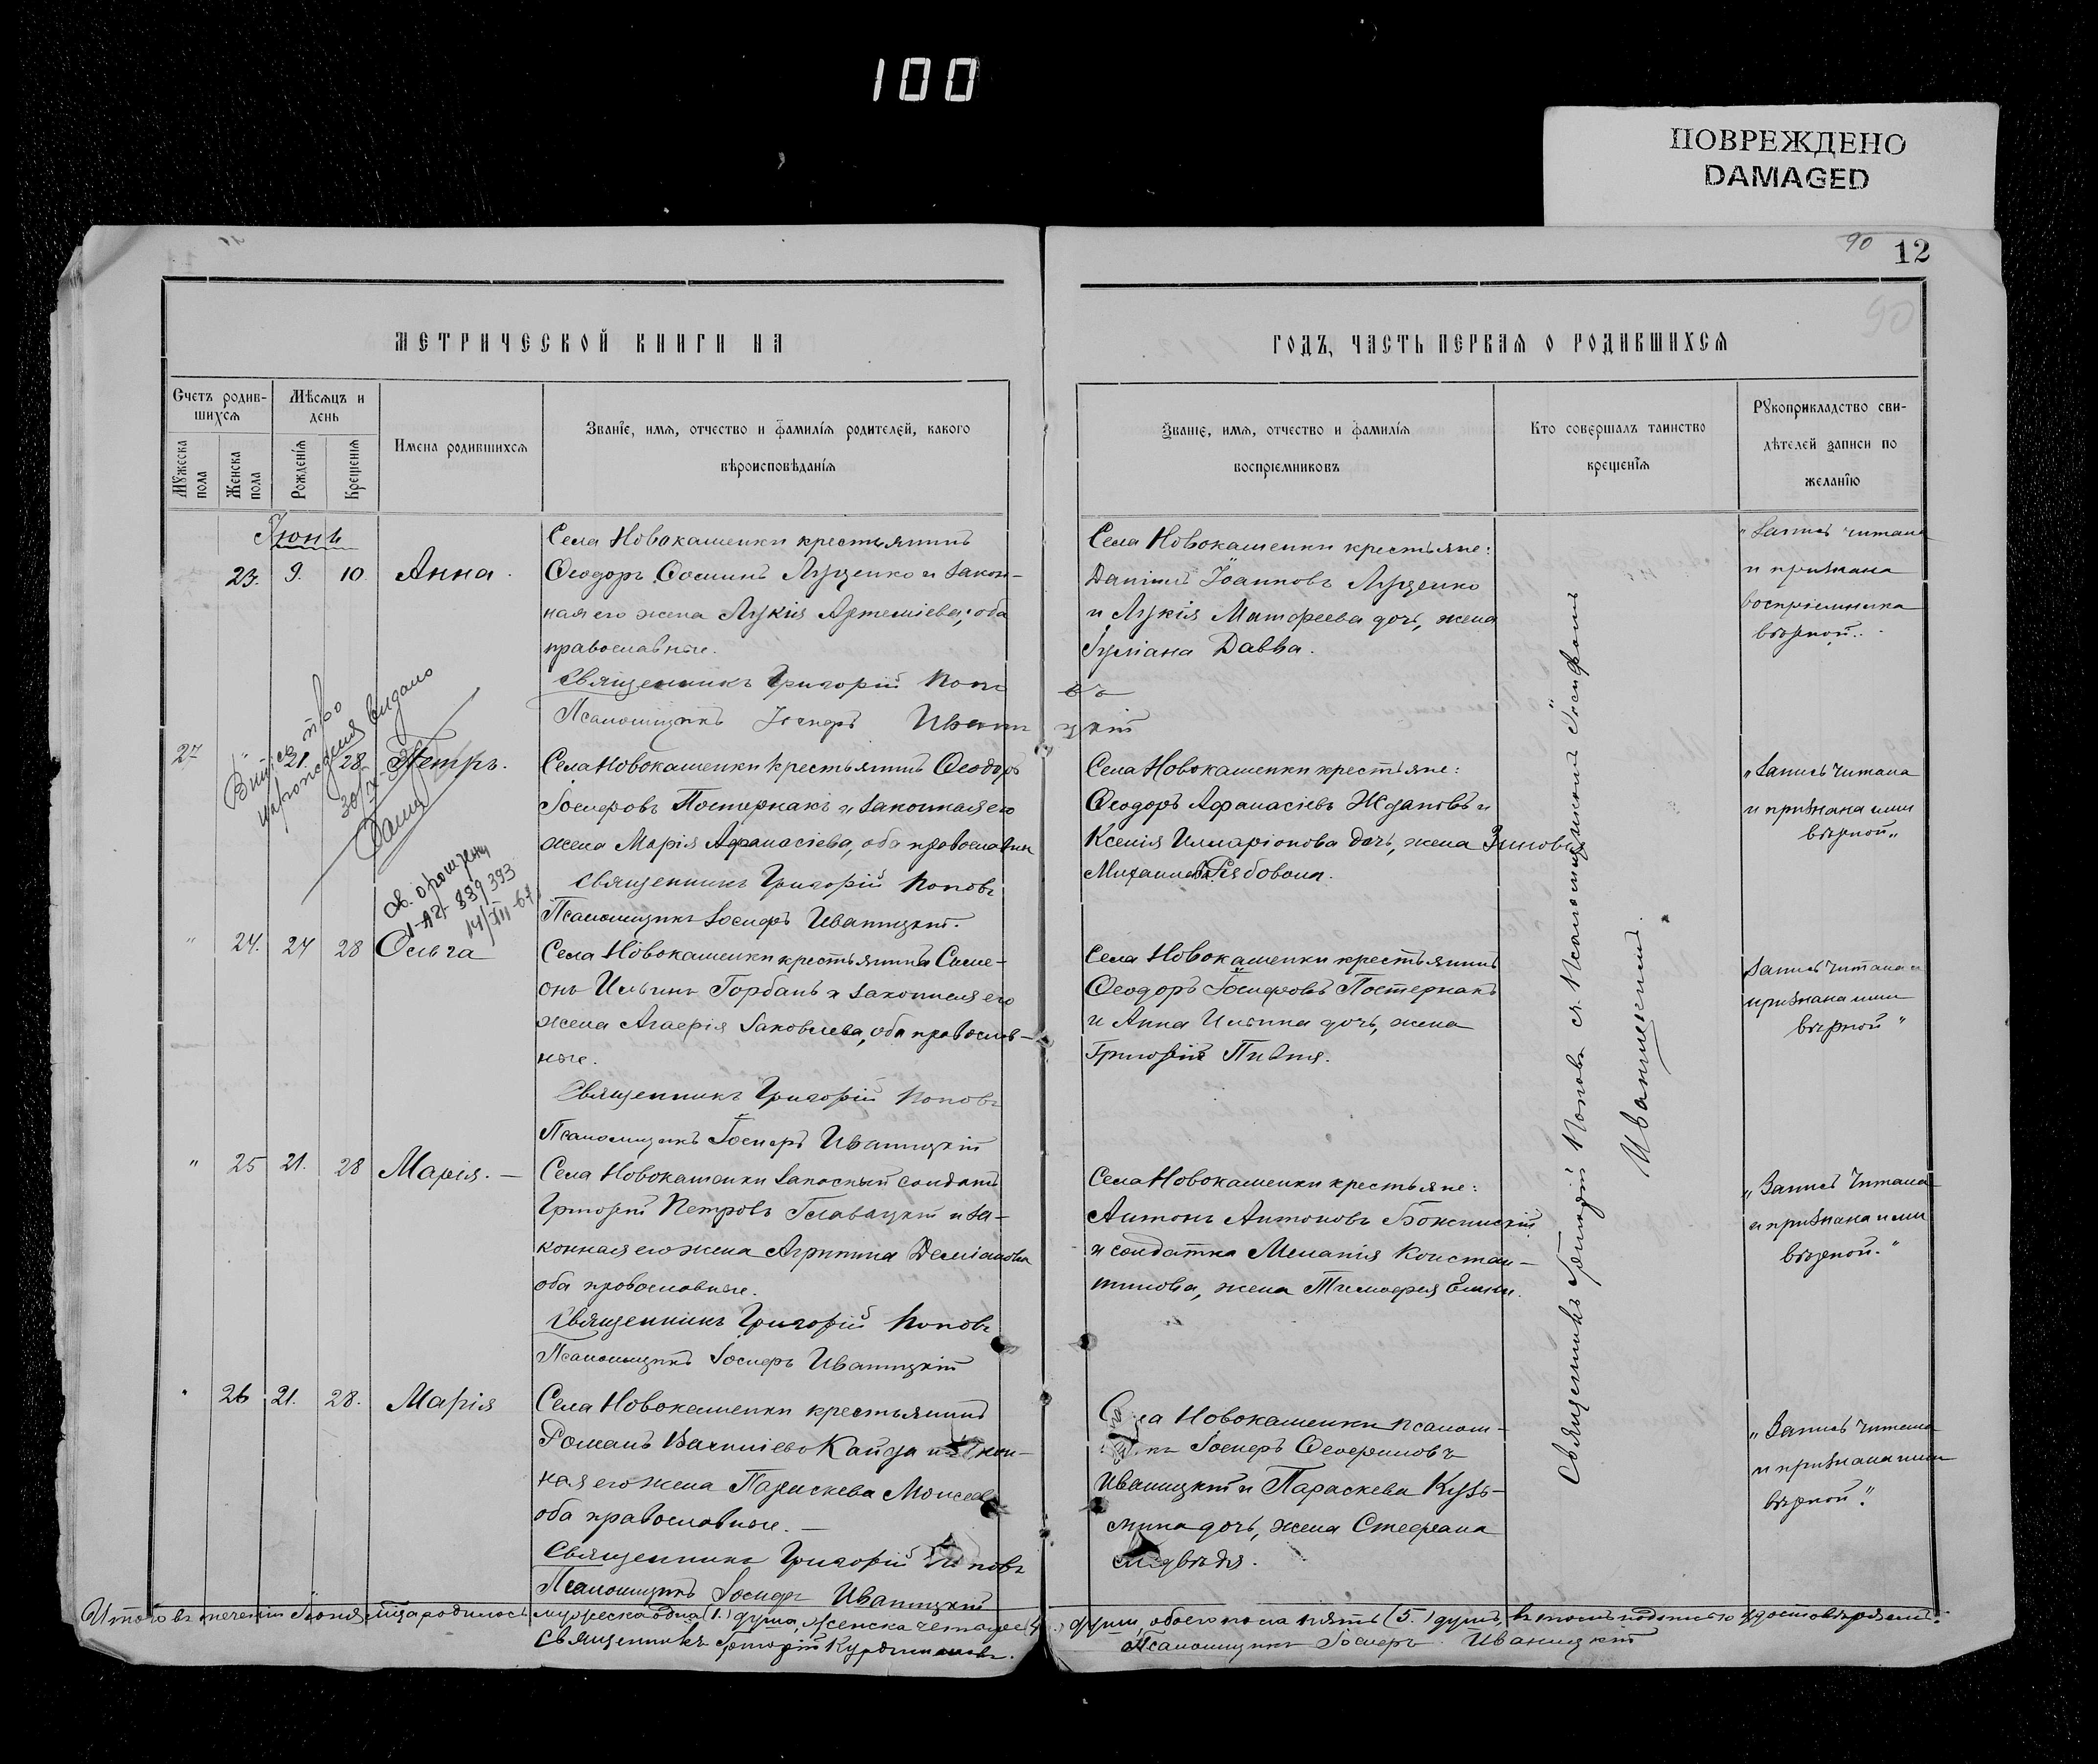 100
ПОВРЕЖДЕНО
DAMAGED
90
12
90
МЕТРИЧЕСКОЙ КНИГИ НА
ГОДЪ, ЧАСТЬ ПЕРВАЯ О РОДИВШИХСЯ
Счетъ родив-
шихся
Мѣсяцъ и
день
Мужеска
пола
Женска
пола
Рожденія
Крещенія
Имена родившихся
Званіе, имя, отчество и фамилія родителей, какого
вѣроисповѣданія
Званіе, имя, отчество и фамилія
воспріемниковъ
Кто совершалъ таинство
крещенія
Рукоприкладство сви-
дѣтелей записи по
желанію
Іюнь
23. 9. 10. Анна.
Села Новокашенки крестьянинъ
Ѳеодоръ Луценко и закон-
ная его жена Лукія Артеміева, оба
православные.
Священникъ Григорій Поповъ
Псаломщикъ Іосифъ Иваницкій
Села Новокашенки крестьяне:
Даніилъ Іоанновъ Луценко
и Лукія Матѳеева дочь, жена
Давва.
"Запись читана
и признана
воспріемника
вѣрной.
27 " 21. 28. Петръ.
Витяг про
народження видано
30/IX
Села Новокашенки крестьянинъ Ѳеодоръ
Іосифовъ Постернакъ и законная его
жена Марія Афанасіева, оба православны
Священникъ Григорій Поповъ
Псаломщикъ Іосифъ Иваницкій.
Села Новокашенки крестьяне:
Ѳеодоръ Афанасіевъ Ждановъ и
Ксенія Илларіонова дочь, жена
Рябовола.
"Запись читана
и признана ими
вѣрной"
св. о рожден
389393
14/XII-67
" 24. 24 28 Ольга
Села Новокашенки крестьянинъ Симе-
онъ Ильинъ Горбань и законная его
жена Агафія Іаковлева, оба православ-
ные.
Священникъ Григорій Поповъ
Псаломщикъ Іосифъ Иваницкій
Села Новокашенки крестьянинъ
Ѳеодоръ Іосифовъ Постернакъ
и Анна Ильина дочь, жена
Григорія
Запись читана и
признана ими
вѣрной"
" 25 21. 28 Марія. —
Села Новокашенки запасный солдатъ
Григорій Петровъ Главацкій и за-
конная его жена Агрипина Деміанова
оба православные.
Священникъ Григорій Поповъ
Псаломщикъ Іосифъ Иваницкій
Села Новокашенки крестьяне:
Антонъ Антоновъ
и солдатка Меланія Констан-
тинова, жена Тимофея
"Запись читана
и признана ими
вѣрной."
" 26 21. 28. Марія
Села Новокашенки крестьянинъ
Романъ Кайда и закон-
ная его жена Параскева Моисеева
оба православные. —
Священникъ Григорій Поповъ
Псаломщикъ Іосифъ Иваницкій
Села Новокашенки псалом-
щикъ Іосифъ
Иваницкій и Параскева Кузь-
мина дочь, жена Стефана
"Запись читана
и признана ими
вѣрной."
Священникъ Григорій Поповъ съ Псаломщикомъ Іосифомъ
Иваницкимъ.
Итого въ теченіи Іюня м-ца родилось мужеска одна (1.) душа, женска четыре (4.) души, обоего пола пять (5.) душъ, въ томъ подписью удостовѣряемъ:
Священникъ Григорій
Псаломщикъ Іосифъ Иваницкій